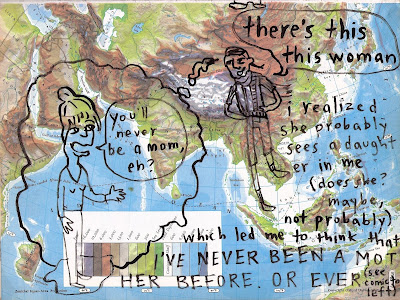 there's this
this woman
you'll
never
be a mom,
eh?
i realized
she probably
sees a daught
er in me
(does she?
maybe,
not probably)
which led me to think that
I'VE NEVER BEEN A MOT
HER BEFORE. OR EVER
(see
comic to
left)